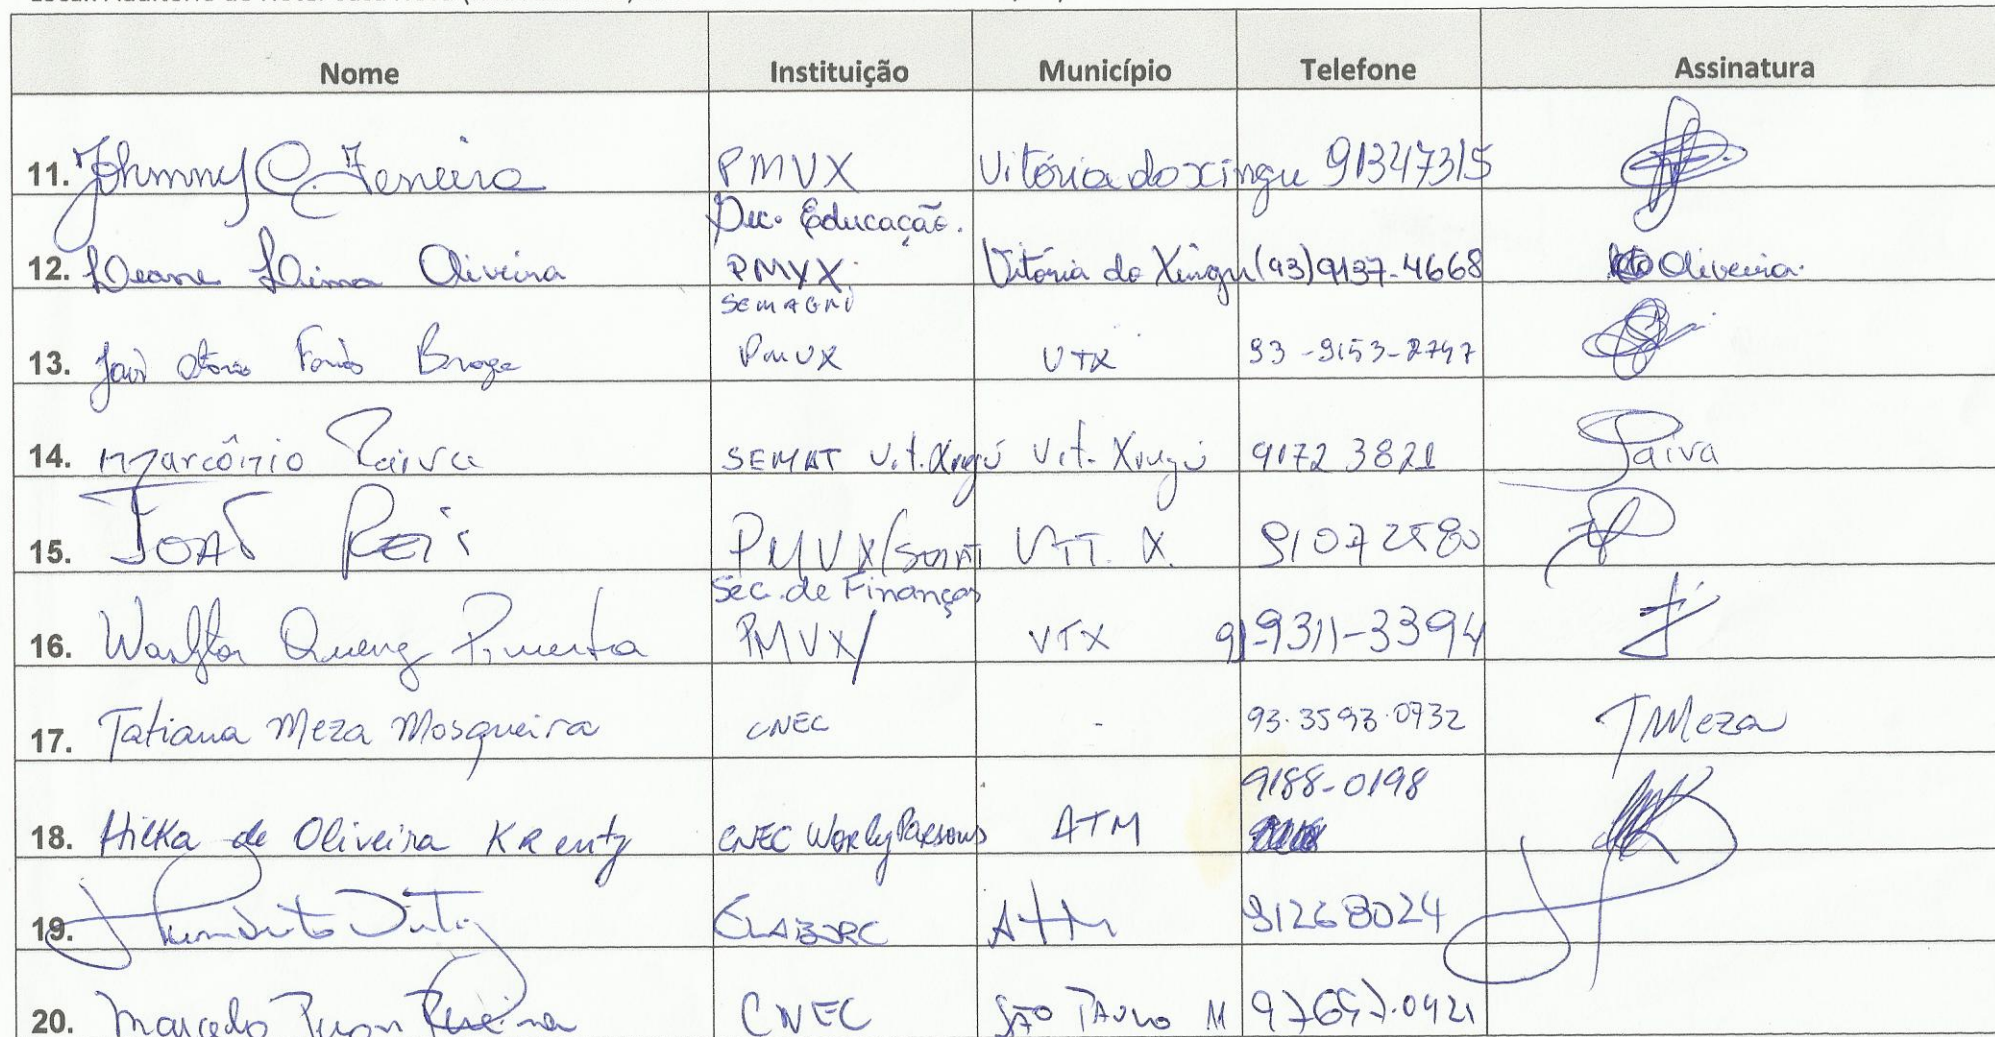 Nome Instituição Município Telefone Assinatura
11. Johnny C. Ferreira PMVX Vitória do xingu 91347315
Sec. Educação.
12. Deane Lima Oliveira PMVX. Vitória do Xingu (93) 9137-4668 Oliveira.
SEMAGRI
13. Braga PMVX VTX 93-9153-2747
14. Marcônio Paiva SEMAT Vit. Xingú Vit. Xingú 9172 3821 Paiva
15. JOÃO REIS PMVX/SEMAT VIT. X. 91072580
Sec. de Finanças
16. Queiroz Pimenta PMVX/ VTX 91-9311-3394
17. Tatiana Meza Mosqueira CNEC - 93.3593.0932 TMeza
9188-0198
18. Hilka de Oliveira Krentz CNEC WorleyParsons ATM
19. ELABORE ATM 91268024
20. Marcelo Pereira CNEC SÃO PAULO 97657.0421